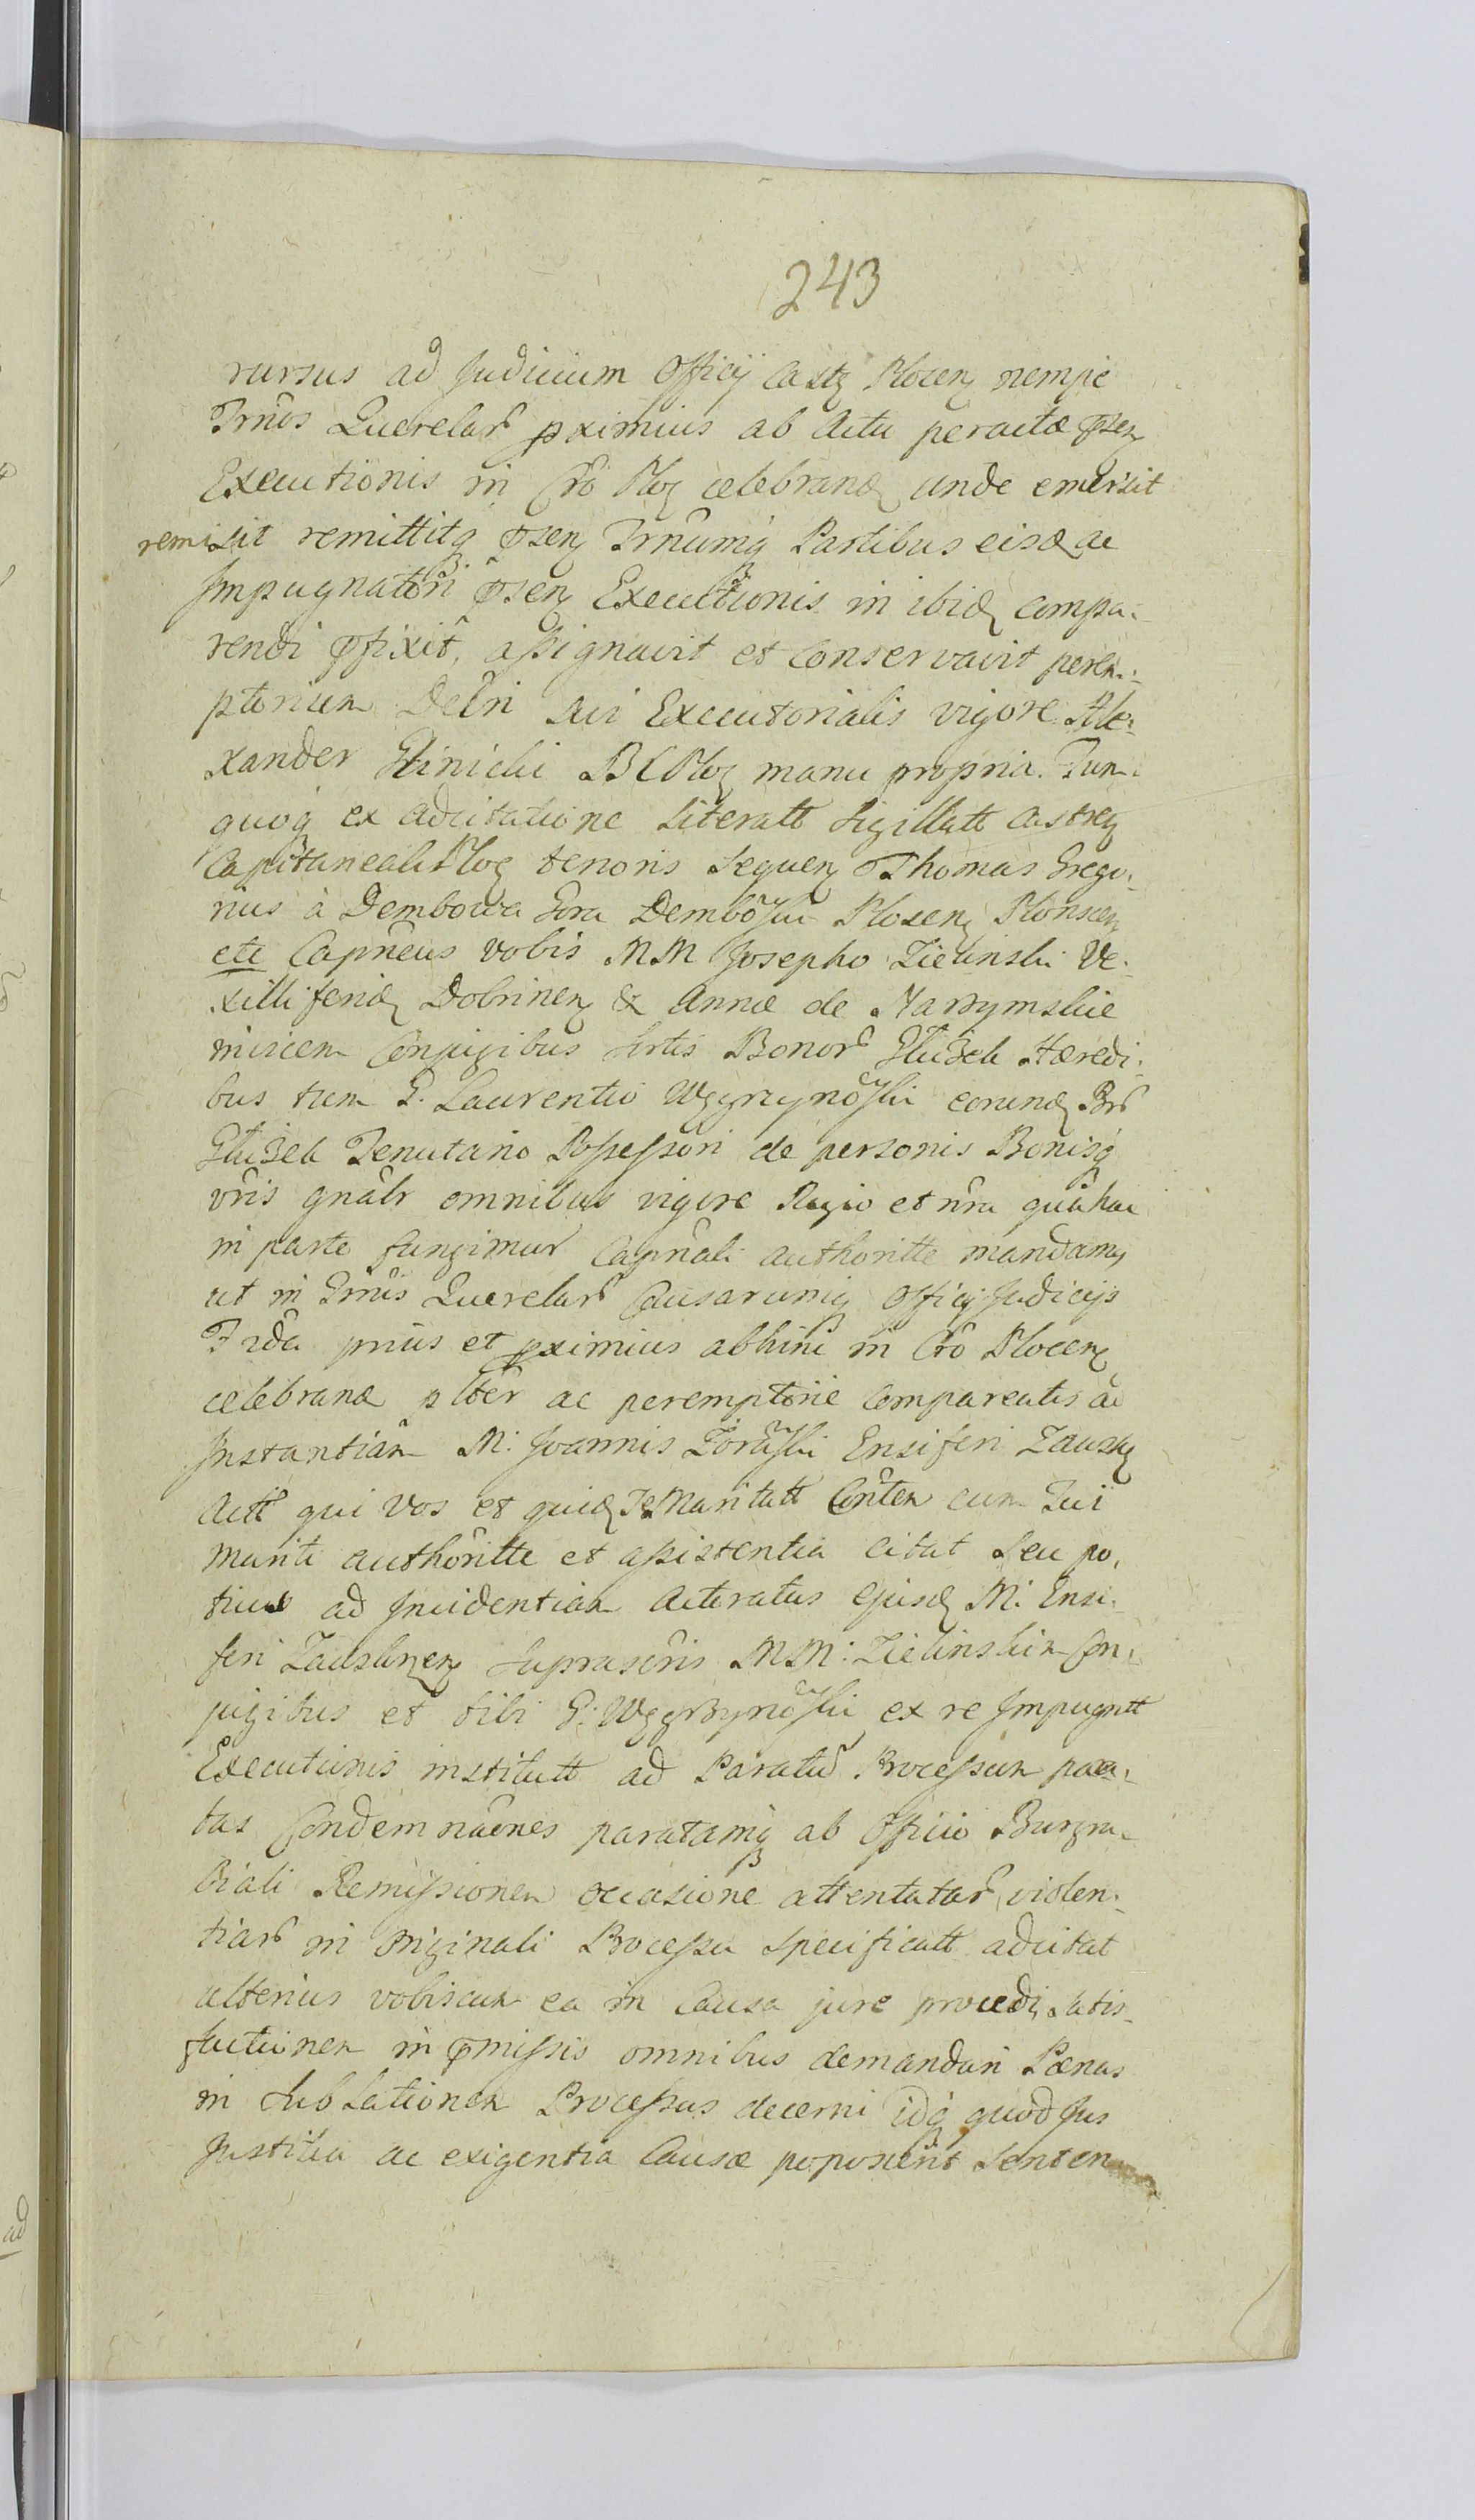 243
rursus ad Judicium Officij Castr Plocen nempe
Trnos Querelarũ pximius ab Actu peractæ psen
Executionis in Cro Ploc celebrand unde emersit
remisit remittitq psen Trnumq Partibus eisd ac
Impugnatori psen Executionis in ibid compa:
rendi pfixit, assignavit et conservavit perem:
ptorium Decri sui Executorialis vigore. Ale:
xander Glinicki B C Ploc manu propria. Tum
quoq ex adcitatione Literatt Sigillatt castren
Capitanealit Ploc tenoris sequen Thomas Grego:
rius à Dembowa Gora Dembowski Plocen Plonscen
etc Capneus Vobis MM Josepho Zielinski Ve:
xilliferid Dobrinen & Annæ de Narzymskie
invicem Conjugibus sortis Bonorũ Gluzek Hæredi:
bus tum G. Laurentio Węgrzynowski eorund Brũ
Gluzek Tenutario Possessori de personis Bonisq
vris gnalr omnibus vigore Regio et nra qua hac
in parte fungimur Capnali authoritte mandamus
ut in Trnis Querelarũ Causarumq Officij Judicijs
Frda prius et pximius abhinc in Cro Plocen
celebrand plter ac peremptorie compareatis ad
Instantiam M: Joannis Zorawski Ensiferi Zausk
Actt qui Vos et quid Te Maritatt Conten cum Tui
mariti authoritte et assistentia citat seu po:
tius ad Incidentiam Actoratus ejusd M: Ensi:
feri Zauskrzen suprascris MM: Zielinskim Con:
jugibus et tibi G: Węgrzynowski ex re Impugntt
Executionis institutt ad Paratũ Processum para:
tas Condemnaones paratamq ab Officio Burgra:
biali Remissionem occasione attentatarũ violen:
tiarũ in originali Processu specificatt adcitat
ulterius vobiscum ea in Causa jure procedi, satis:
factionem in pmissis omnibus demandari Pænas
in sublationem Processus decerni idq quod Jus
Justitia ac exigentia Causæ poposcerit senten